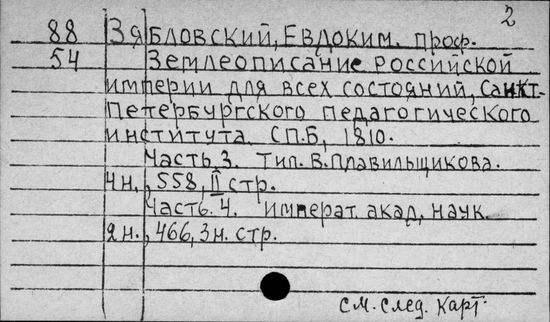 2
88 Зябловский, Евдоким. проф.
54 Землеописание российской
империи для всех состояний, Санкт-
Петербургского педагогического
института. СПБ, 1810.
Часть 3. Тип. В. Плавильщикова.
4н., 558, II стр.
Часть. 4. Императ. акад. наук.
2н., 466, 3н. стр.
См. след. карт.